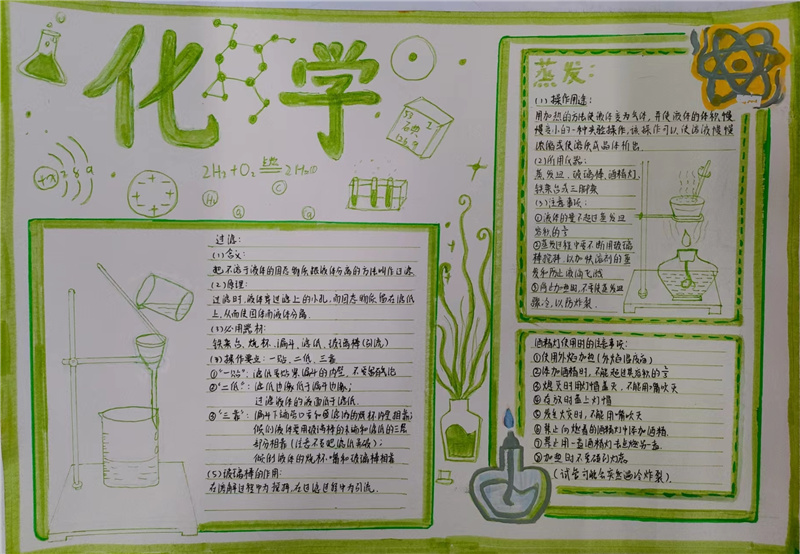 化学
53 2
石热
126.9
+x 2 8 9
2H₂+O₂ 点燃 2H₂O
H₂
C
过滤:
(1)含义:
把不溶于液体的固态物质跟液体分离的方法叫作过滤.
(2)原理:
过滤时,液体穿过滤上的小孔,而固态物质留在滤纸
上,从而使固体和液体分离.
(3)必用器材:
铁架台、烧杯、漏斗、滤纸、玻璃棒(引流)
(4)操作要点:一贴、二低、三靠
①“一贴”:滤纸紧贴漏斗的内壁,不要留气泡
②“二低”:滤纸边缘低于漏斗边缘;
过滤液体的液面低于滤纸.
③“三靠”:漏斗下端尽口要和盛滤液的烧杯内壁相靠;
倾倒液体要用玻璃棒的末端和滤纸的三层
部分相靠(注意不要把滤纸弄破);
倾倒液体的烧杯嘴和玻璃棒相靠
(5)玻璃棒的作用:
在溶解过程中为搅拌,在过滤过程中为引流.
蒸发:
(1)操作用途:
用加热的方法使液体变为气体,并使液体的体积慢
慢变小的一种实验操作,该操作可以使溶液慢慢
浓缩或使溶质成晶体析出
(2)所用仪器:
蒸发皿、玻璃棒、酒精灯、
铁架台或三脚架
(3)注意事项:
①液体的量不超过蒸发皿
容积的⅔
②蒸发过程中要不断用玻璃
棒搅拌,以加快溶剂的蒸
发和防止液滴飞溅
③停止加热时,不要使蒸发皿
骤冷,以防炸裂.
酒精灯使用时的注意事项:
①使用外焰加热(外焰温度高)
②添加酒精时,不能超过其容积的⅔
③熄灭时用灯帽盖灭,不能用嘴吹灭
④存放时盖上灯帽
⑤发生火灾时,不能用嘴吹灭
⑥禁止向燃着的酒精灯中添加酒精.
⑦禁止用一盏酒精灯去点燃另一盏.
⑧加热时不要碰到灯芯
(试管可能会突然遇冷炸裂)